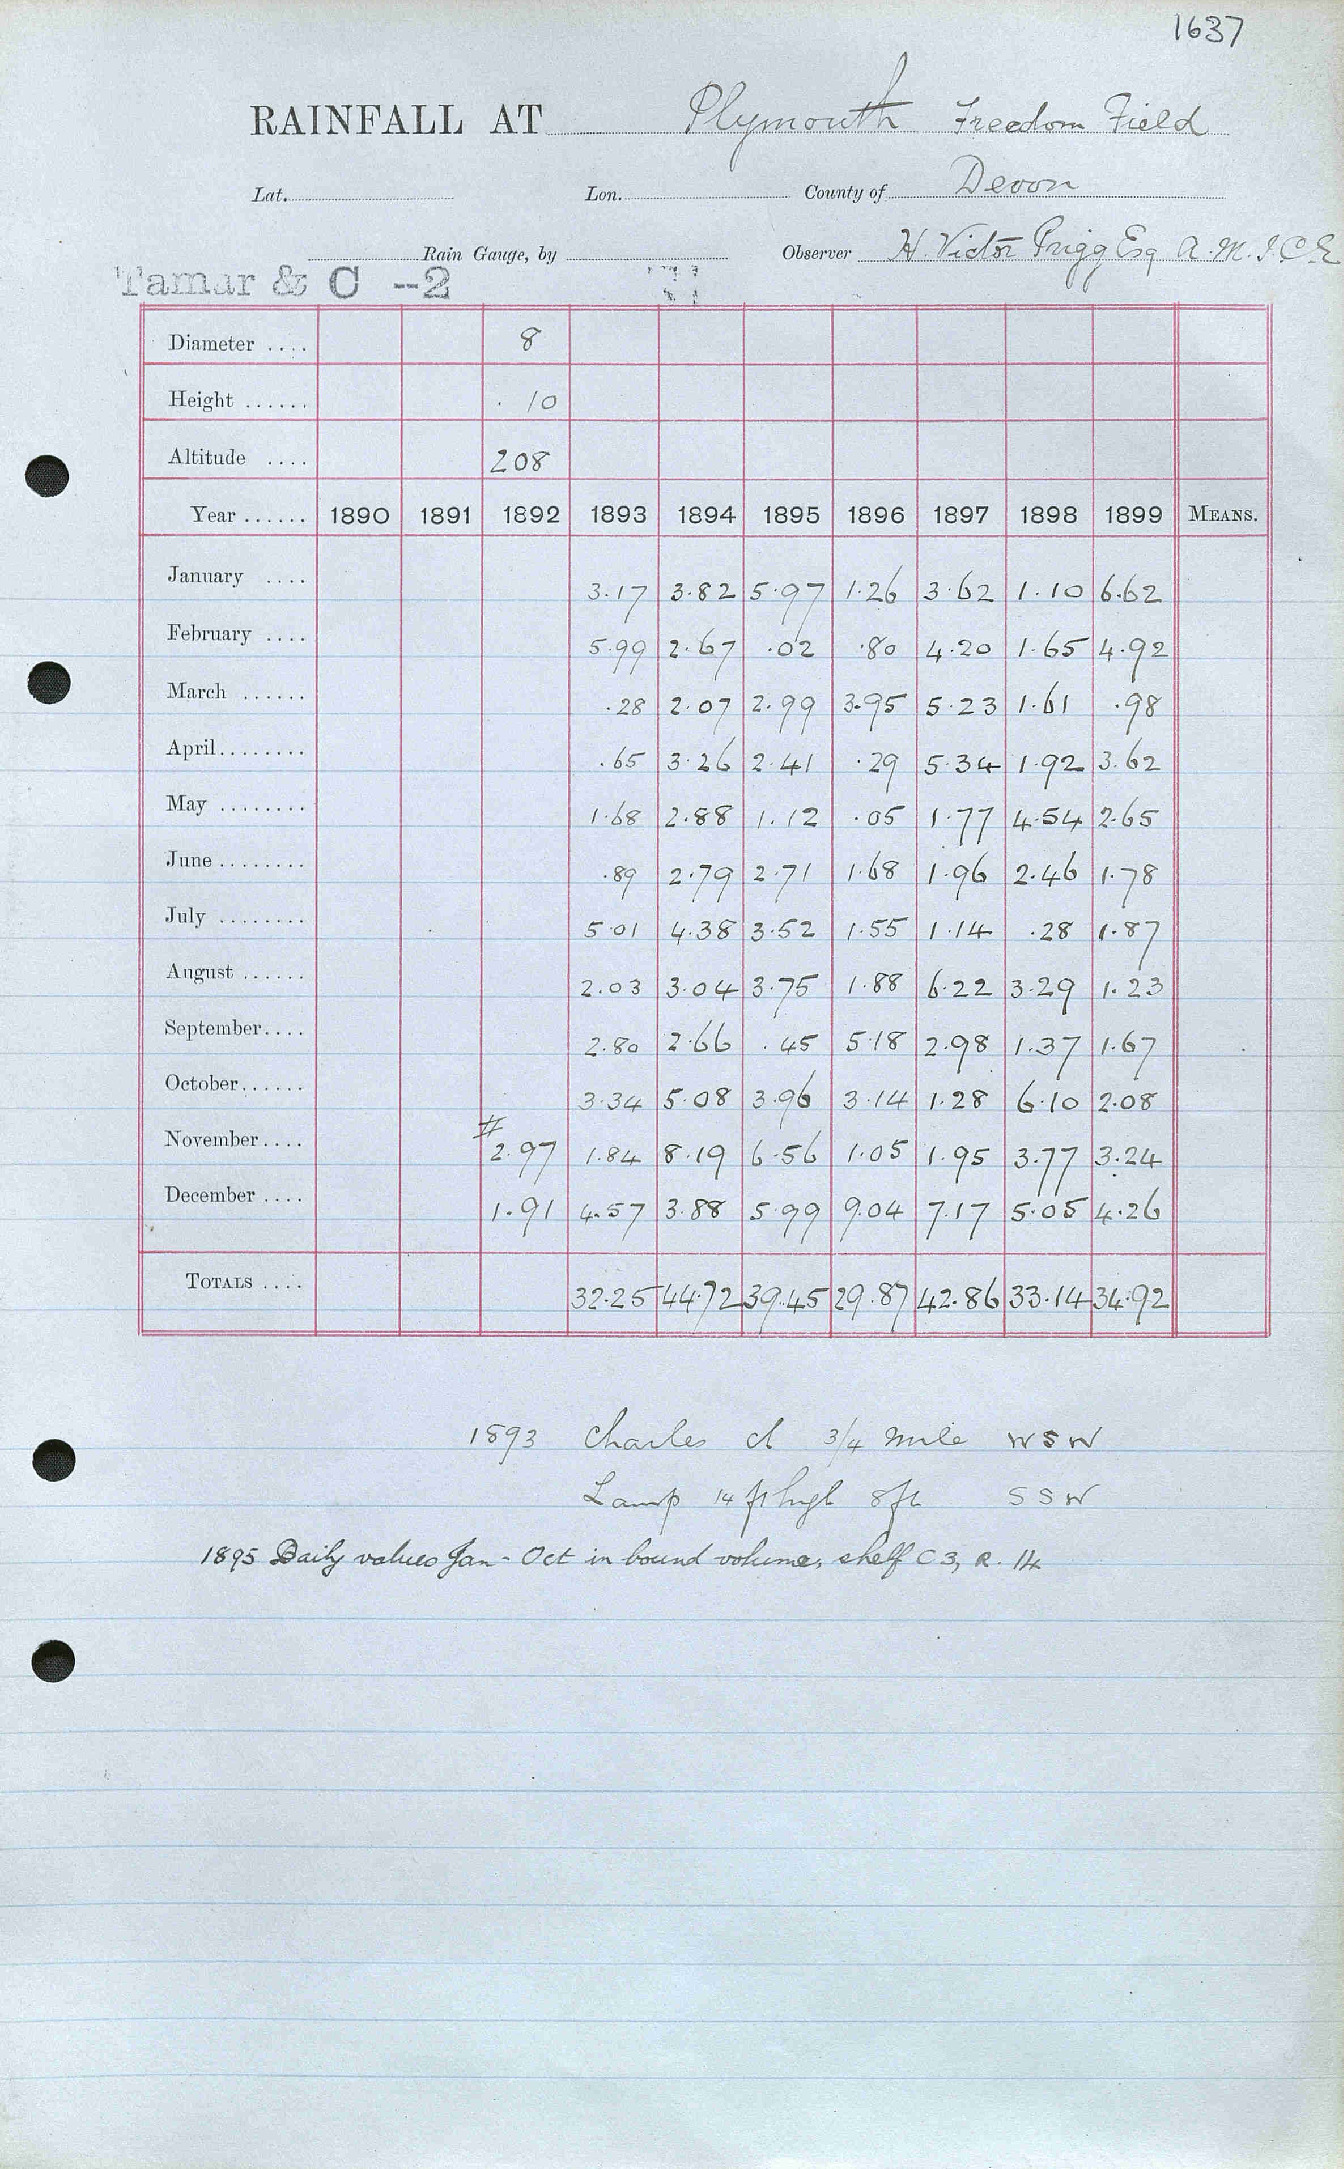 1637
RAINFALL AT Plymouth Freedom Field
Lat. Lon. County of Devon
Rain Gauge, by Observer H. Victor Prigg Esq A.M.I.C.E
Tamar & C --2
Diameter .... 8
Height ...... 10
Altitude .... 208
Year ...... 1890 1891 1892 1893 1894 1895 1896 1897 1898 1899 MEANS.
January .... 3.17 3.82 5.97 1.26 3.62 1.10 6.62
February .... 5.99 2.67 .02 .80 4.20 1.65 4.92
March ...... .28 2.07 2.99 3.95 5.23 1.61 .98
April ........ .65 3.26 2.41 .29 5.34 1.92 3.62
May ........ 1.68 2.88 1.12 .05 1.77 4.54 2.65
June ........ .89 2.79 2.71 1.68 1.96 2.46 1.78
July ........ 5.01 4.38 3.52 1.55 1.14 .28 1.87
August ...... 2.03 3.04 3.75 1.88 6.22 3.29 1.23
September.... 2.80 2.66 .45 5.18 2.98 1.37 1.67
October...... 3.34 5.08 3.96 3.14 1.28 6.10 2.08
November.... # 2.97 1.84 8.19 6.56 1.05 1.95 3.77 3.24
December .... 1.91 4.57 3.88 5.99 9.04 7.17 5.05 4.26
TOTALS .... 32.25 44.72 39.45 29.87 42.86 33.14 34.92
1893 Charles ch 3/4 mile WSW
Lamp 14 ft high 8ft SSW
1895 Daily values Jan - Oct in bound volume, shelf C3, R. 14